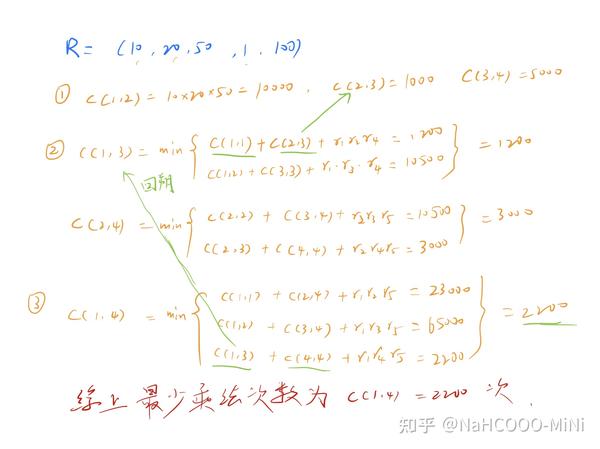 R = (10, 20, 50, 1, 100)
① C(1,2) = 10×20×50 = 10000, C(2,3) = 1000 C(3,4) = 5000
② C(1,3) = min { C(1,1) + C(2,3) + r₁r₂r₄ = 1200
C(1,2) + C(3,3) + r₁·r₃·r₄ = 10500 } = 1200
回溯
C(2,4) = min { C(2,2) + C(3,4) + r₂r₃r₅ = 10500
C(2,3) + C(4,4) + r₂r₄r₅ = 3000 } = 3000
③ C(1,4) = min { C(1,1) + C(2,4) + r₁r₂r₅ = 23000
C(1,2) + C(3,4) + r₁r₃r₅ = 65000
C(1,3) + C(4,4) + r₁r₄r₅ = 2200 } = 2200
综上 最少乘法次数为 C(1,4) = 2200 次.
知乎 @NaHCOOO-MiNi